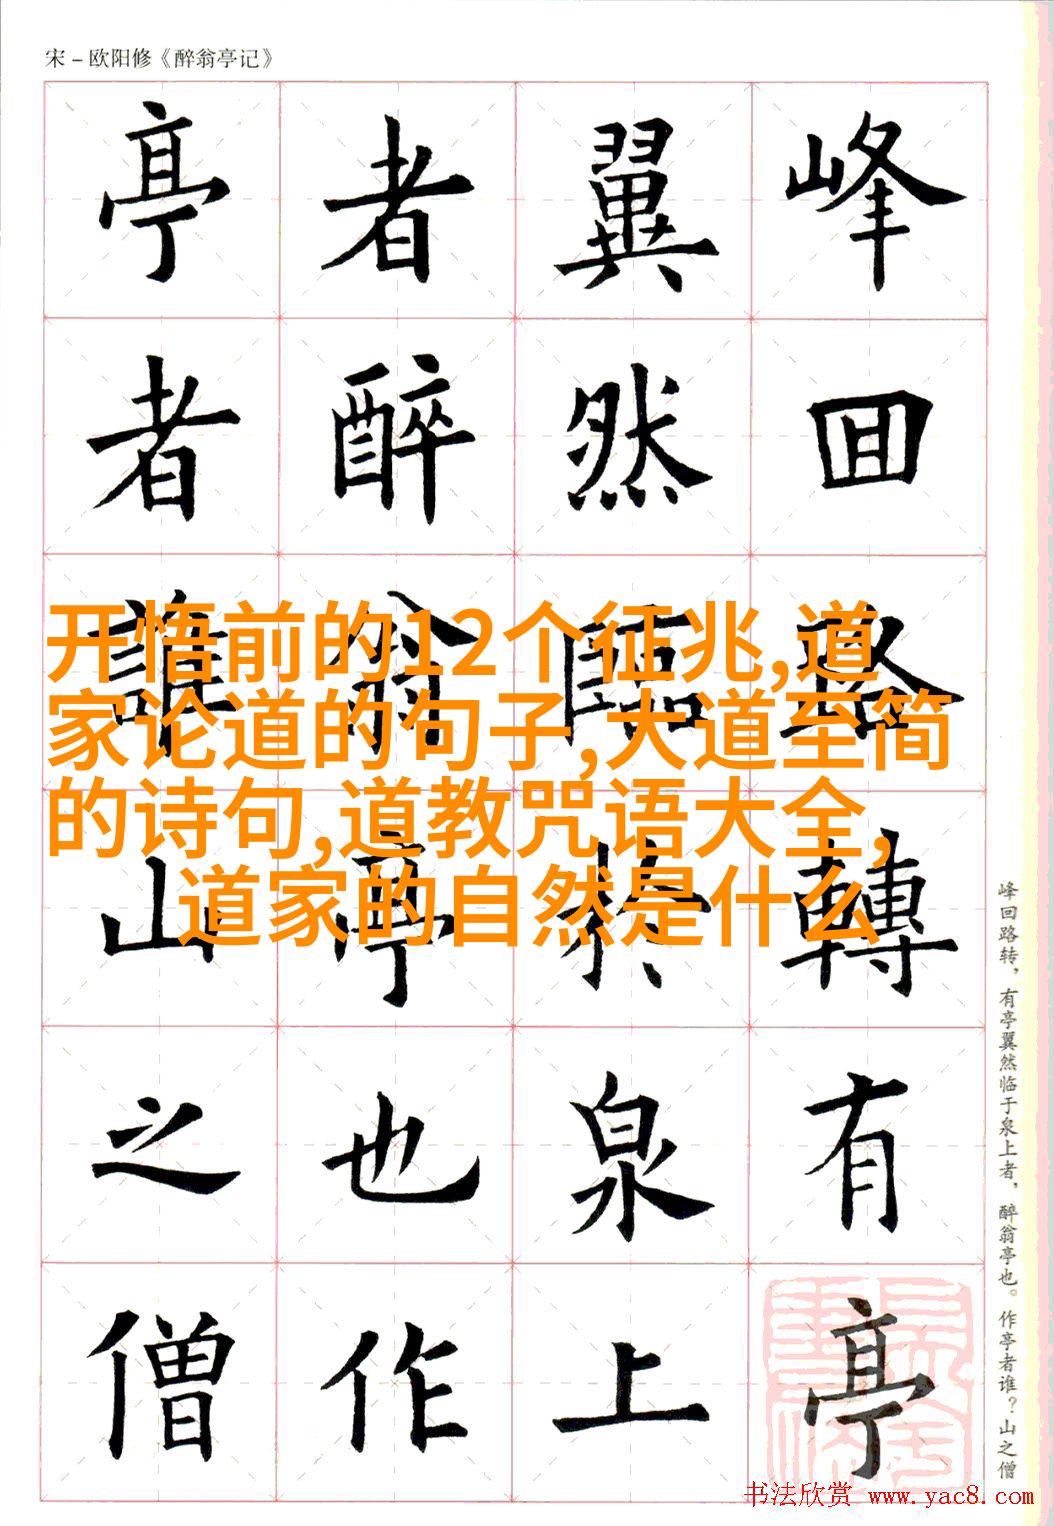 宋－欧阳修《醉翁亭记》
峰回路轉有亭
翼然臨於泉上
者醉翁亭也作
亭者誰山之僧
开悟前的12个征兆,道
家论道的句子,大道至简
的诗句,道教咒语大全,
道家的自然是什么
峰回路转，有亭翼然临于泉上者，醉翁亭也。作亭者谁？山之僧
书法欣赏 www.yac8.com